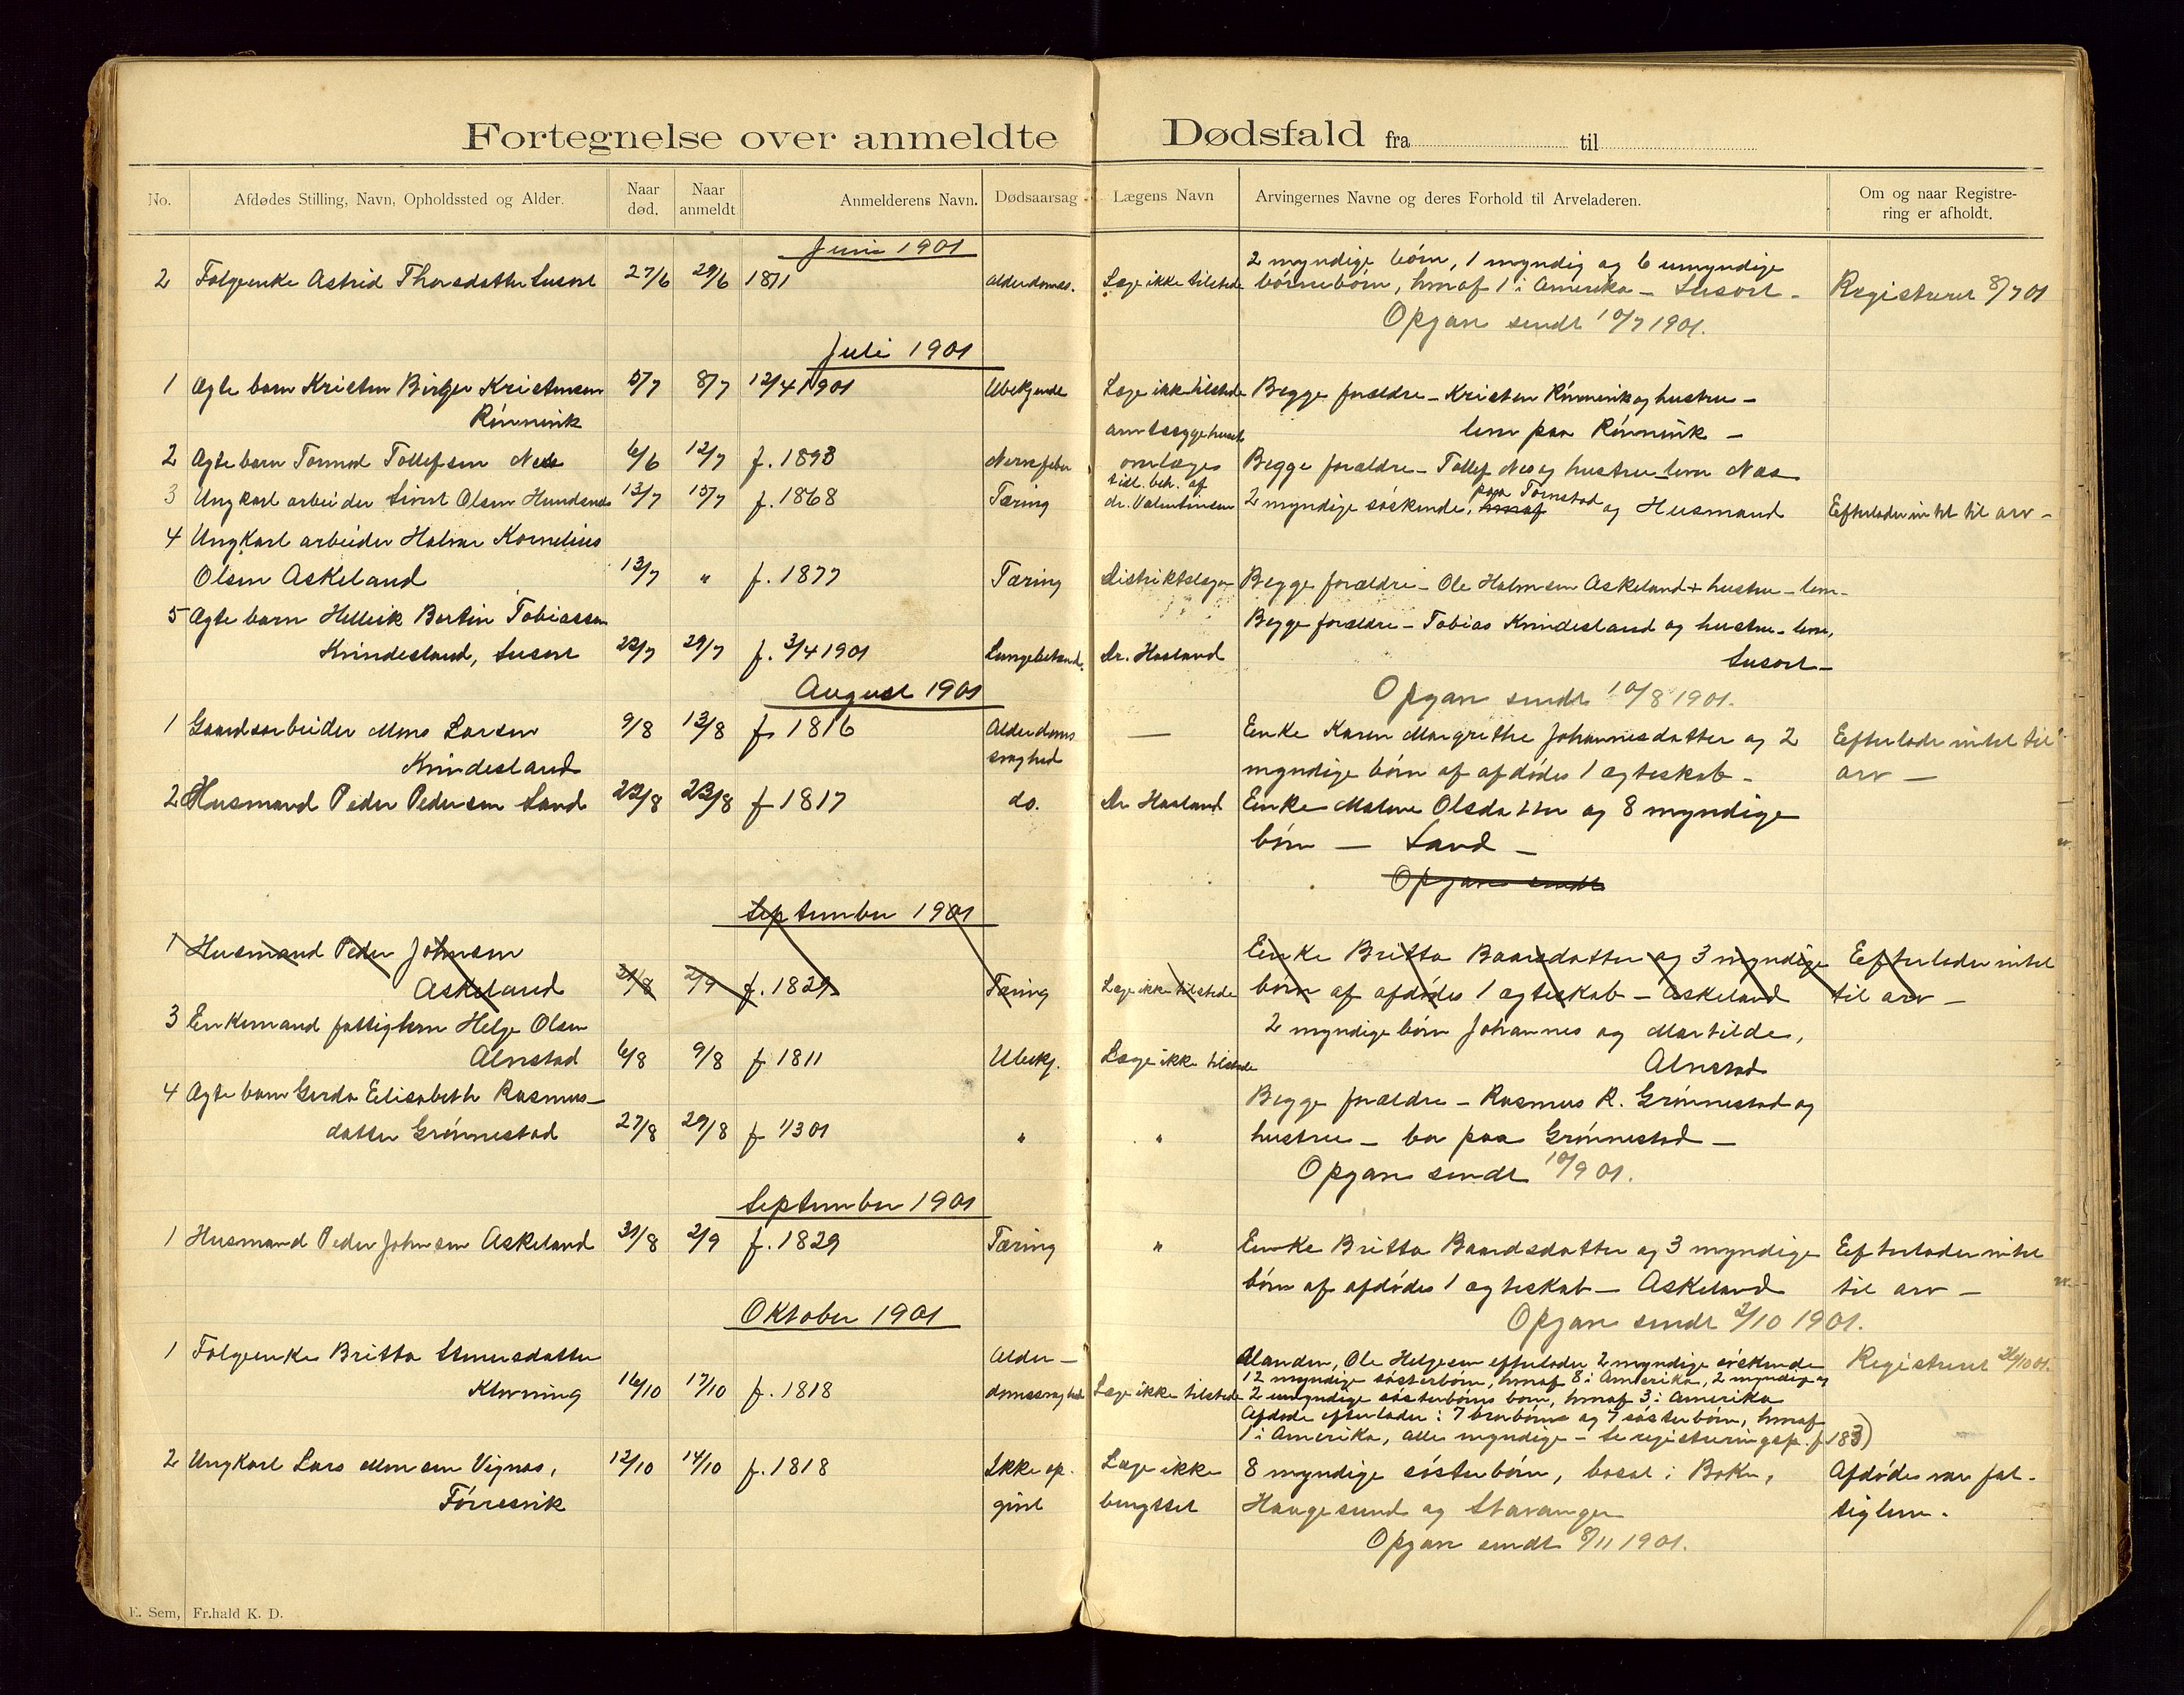 Fortegnelse over anmeldte Dødsfald fra til
No. Afdødes Stilling, Navn, Opholdssted og Alder. Naar død. Naar anmeldt Anmelderens Navn. Dødsaarsag Lægens Navn Arvingernes Navne og deres Forhold til Arveladeren. Om og naar Registrering er afholdt.
Juni 1901
2 myndige børn, 1 myndig og 6 umyndige
2 Folgeenke Astrid Thorsdatter Susort 27/6 29/6 1871 alderdomss. Læge ikke tilstede børnebørn, hvoraf 1 i Amerika - Susort - Registreret 8/7 01
Opgave sendt 10/7 1901.
Juli 1901
1 Ægte barn Kristen Birger Kristensen 5/7 8/7 12/4 1901 Ubekjendt Læge ikke tilstede Begge forældre - Kristen Rønnevik og hustru -
Rønnevik amtssygehuset leve paa Rønnevik -
2 Ægte barn Tormod Tollefsen Nes 6/6 12/7 f. 1893 Nervefeber overlæge Begge forældre - Tollef Nes og hustru leve Næs
3 Ungkarl arbeider Sivert Olsen Hundsnes 13/7 15/7 f. 1868 Tæring tidl. beh. af dr. Valentinsen 2 myndige søskende, hvoraf paa Tornstad og Husmand Efterlader intet til arv -
4 Ungkarl arbeider Halvar Kornelius
Olsen Askeland 13/7 " f. 1877 Tæring Distriktslægen Begge forældre - Ole Halvorsen Askeland + hustru - leve -
5 Ægte barn Hellik Bertin Tobiassen Begge forældre - Tobias Kvindesland og hustru - leve,
Kvindesland, Susort 23/7 29/7 f. 3/4 1901 Lungebetænd. Dr. Hasland Susort -
August 1901 Opgave sendt 10/8 1901.
1 Gaardsarbeider Mons Larsen 9/8 13/8 f 1816 Alderdoms Enke Karen Margrethe Johannesdatter og 2 Efterlader intet til
Kvindesland svaghed myndige børn af afdødes 1 ægteskab - arv -
2 Husmand Peder Pedersen Sand 22/8 23/8 f 1817 do. Dr Hasland Enke Malene Olsdatter og 8 myndige
børn - Sand -
Opgave sendt
September 1901
1 Husmand Peder Johnsen Enke Britta Baardsdatter og 3 myndige Efterlader intet
Askeland 31/8 2/9 f. 1829 Tæring Læge ikke tilstede børn af afdødes 1 ægteskab - Askeland til arv -
3 Enkemand fattiglem Helge Olsen 2 myndige børn Johannes og Martilde,
Alvestad 6/8 9/8 f 1811 Ubekj. Læge ikke tilstede Alvestad
4 Ægte barn Gerda Elisabeth Rasmus- Begge forældre - Rasmus R. Grønnestad og
datter Grønnestad 27/8 29/8 f 1/3 01 " " hustru - bor paa Grønnestad -
Opgave sendt 10/9 01.
September 1901
1 Husmand Peder Johnsen Askeland 31/8 2/9 f. 1829 Tæring " Enke Britta Baardsdatter og 3 myndige Efterlader intet
børn af afdødes 1 ægteskab - Askeland til arv -
Oktober 1901 Opgave sendt 2/10 1901.
1 Folgeenke Britta Svensdatter Alder- Manden, Ole Helgesen efterlader 2 myndige søskende Registreret 26/10 01.
12 myndige søsterbørn, hvoraf 8 i Amerika, 2 myndig og
Klovning 16/10 17/10 f. 1818 domssvaghed Læge ikke tilstede 2 umyndige søsterbørns børn, hvoraf 3 i Amerika
Afdøde efterlader: 7 brorbørn og 7 søsterbørn, hvoraf
1 i Amerika, alle myndige - Se registreringsp. f 183)
2 Ungkarl Lars Monsen Vignes, 12/10 14/10 f. 1818 Ikke op- Læge ikke 8 myndige søsterbørn, bosat i Bokn, Afdøde var fat-
Førresvik givet benyttet Haugesund og Stavanger tiglem.
Opgave sendt 8/11 1901.
E. Sem, Fr.hald K. D.